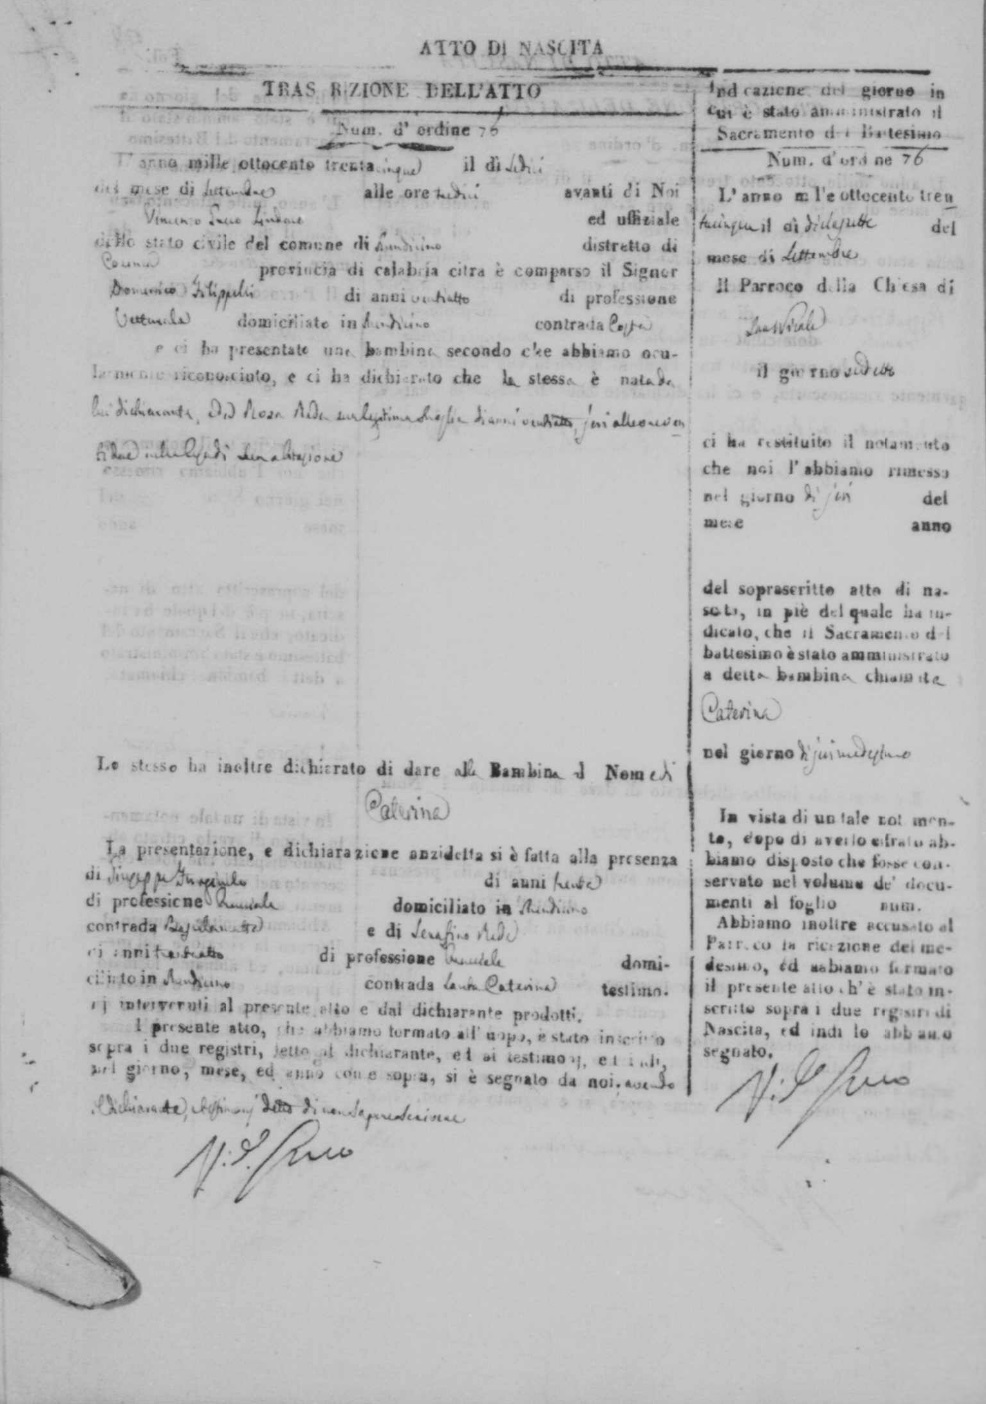 ATTO DI NASCITA
TRAS RIZIONE DELL'ATTO
Num. d' ordine 76
L'anno mille ottocento trenta cinque il dì Sedici
del mese di Settembre alle ore avanti di Noi
Vincenzo Sindaco ed uffiziale
dello stato civile del comune di distretto di
Cosenza provincia di calabria citra è comparso il Signor
Domenico Filippelli di anni ventotto di professione
Vetturale domiciliato in contrada Costa
e ci ha presentate una bambina secondo che abbiamo ocu-
larmente riconosciuto, e ci ha dichiarato che la stessa è nata da
lui dichiarante, ed Rosa Reda sua legittima moglie di anni ventotto, jeri alle ore ven
tidue nella sua abitazione
Lo stesso ha inoltre dichiarato di dare alla Bambina il Nome di
Caterina
La presentazione, e dichiarazione anzidetta si è fatta alla presenza
di Giuseppe di anni trenta
di professione domiciliato in
contrada e di Serafino Reda
di anni trentotto di professione domi-
ciliato in contrada Santa Caterina testimo-
nj intervenuti al presente atto e dal dichiarante prodotti.
l presente atto, che abbiamo formato all' uopo, è stato inscritto
sopra i due registri, letto al dichiarante, ed ai testimonj, ed indi,
nel giorno, mese, ed anno come sopra, si è segnato da noi, avendo
il dichiarante, e testimonj detto di non saper scrivere
V. S.
Indicazione del giorno in
cui è stato amministrato il
Sacramento del Battesimo
Num. d'ordine 76
L'anno mille ottocento tren
tacinque il dì dicisette del
mese di Settembre
Il Parroco della Chiesa di
San Nicola
il giorno sudetto
ci ha restituito il notamento
che noi l'abbiamo rimesso
nel giorno di jeri del
mese anno
del soprascritto atto di na-
scita, in piè del quale ha in-
dicato, che il Sacramento del
battesimo è stato amministrato
a detta bambina chiamata
Caterina
nel giorno di jeri medesimo
In vista di un tale notamen-
to, dopo di averlo cifrato ab-
biamo disposto che fosse con-
servato nel volume de' docu-
menti al foglio num.
Abbiamo inoltre accusato al
Parroco la ricezione del me-
desimo, ed abbiamo formato
il presente atto ch' è stato in-
scritto sopra i due registri di
Nascita, ed indi lo abbiamo
segnato.
V. S.